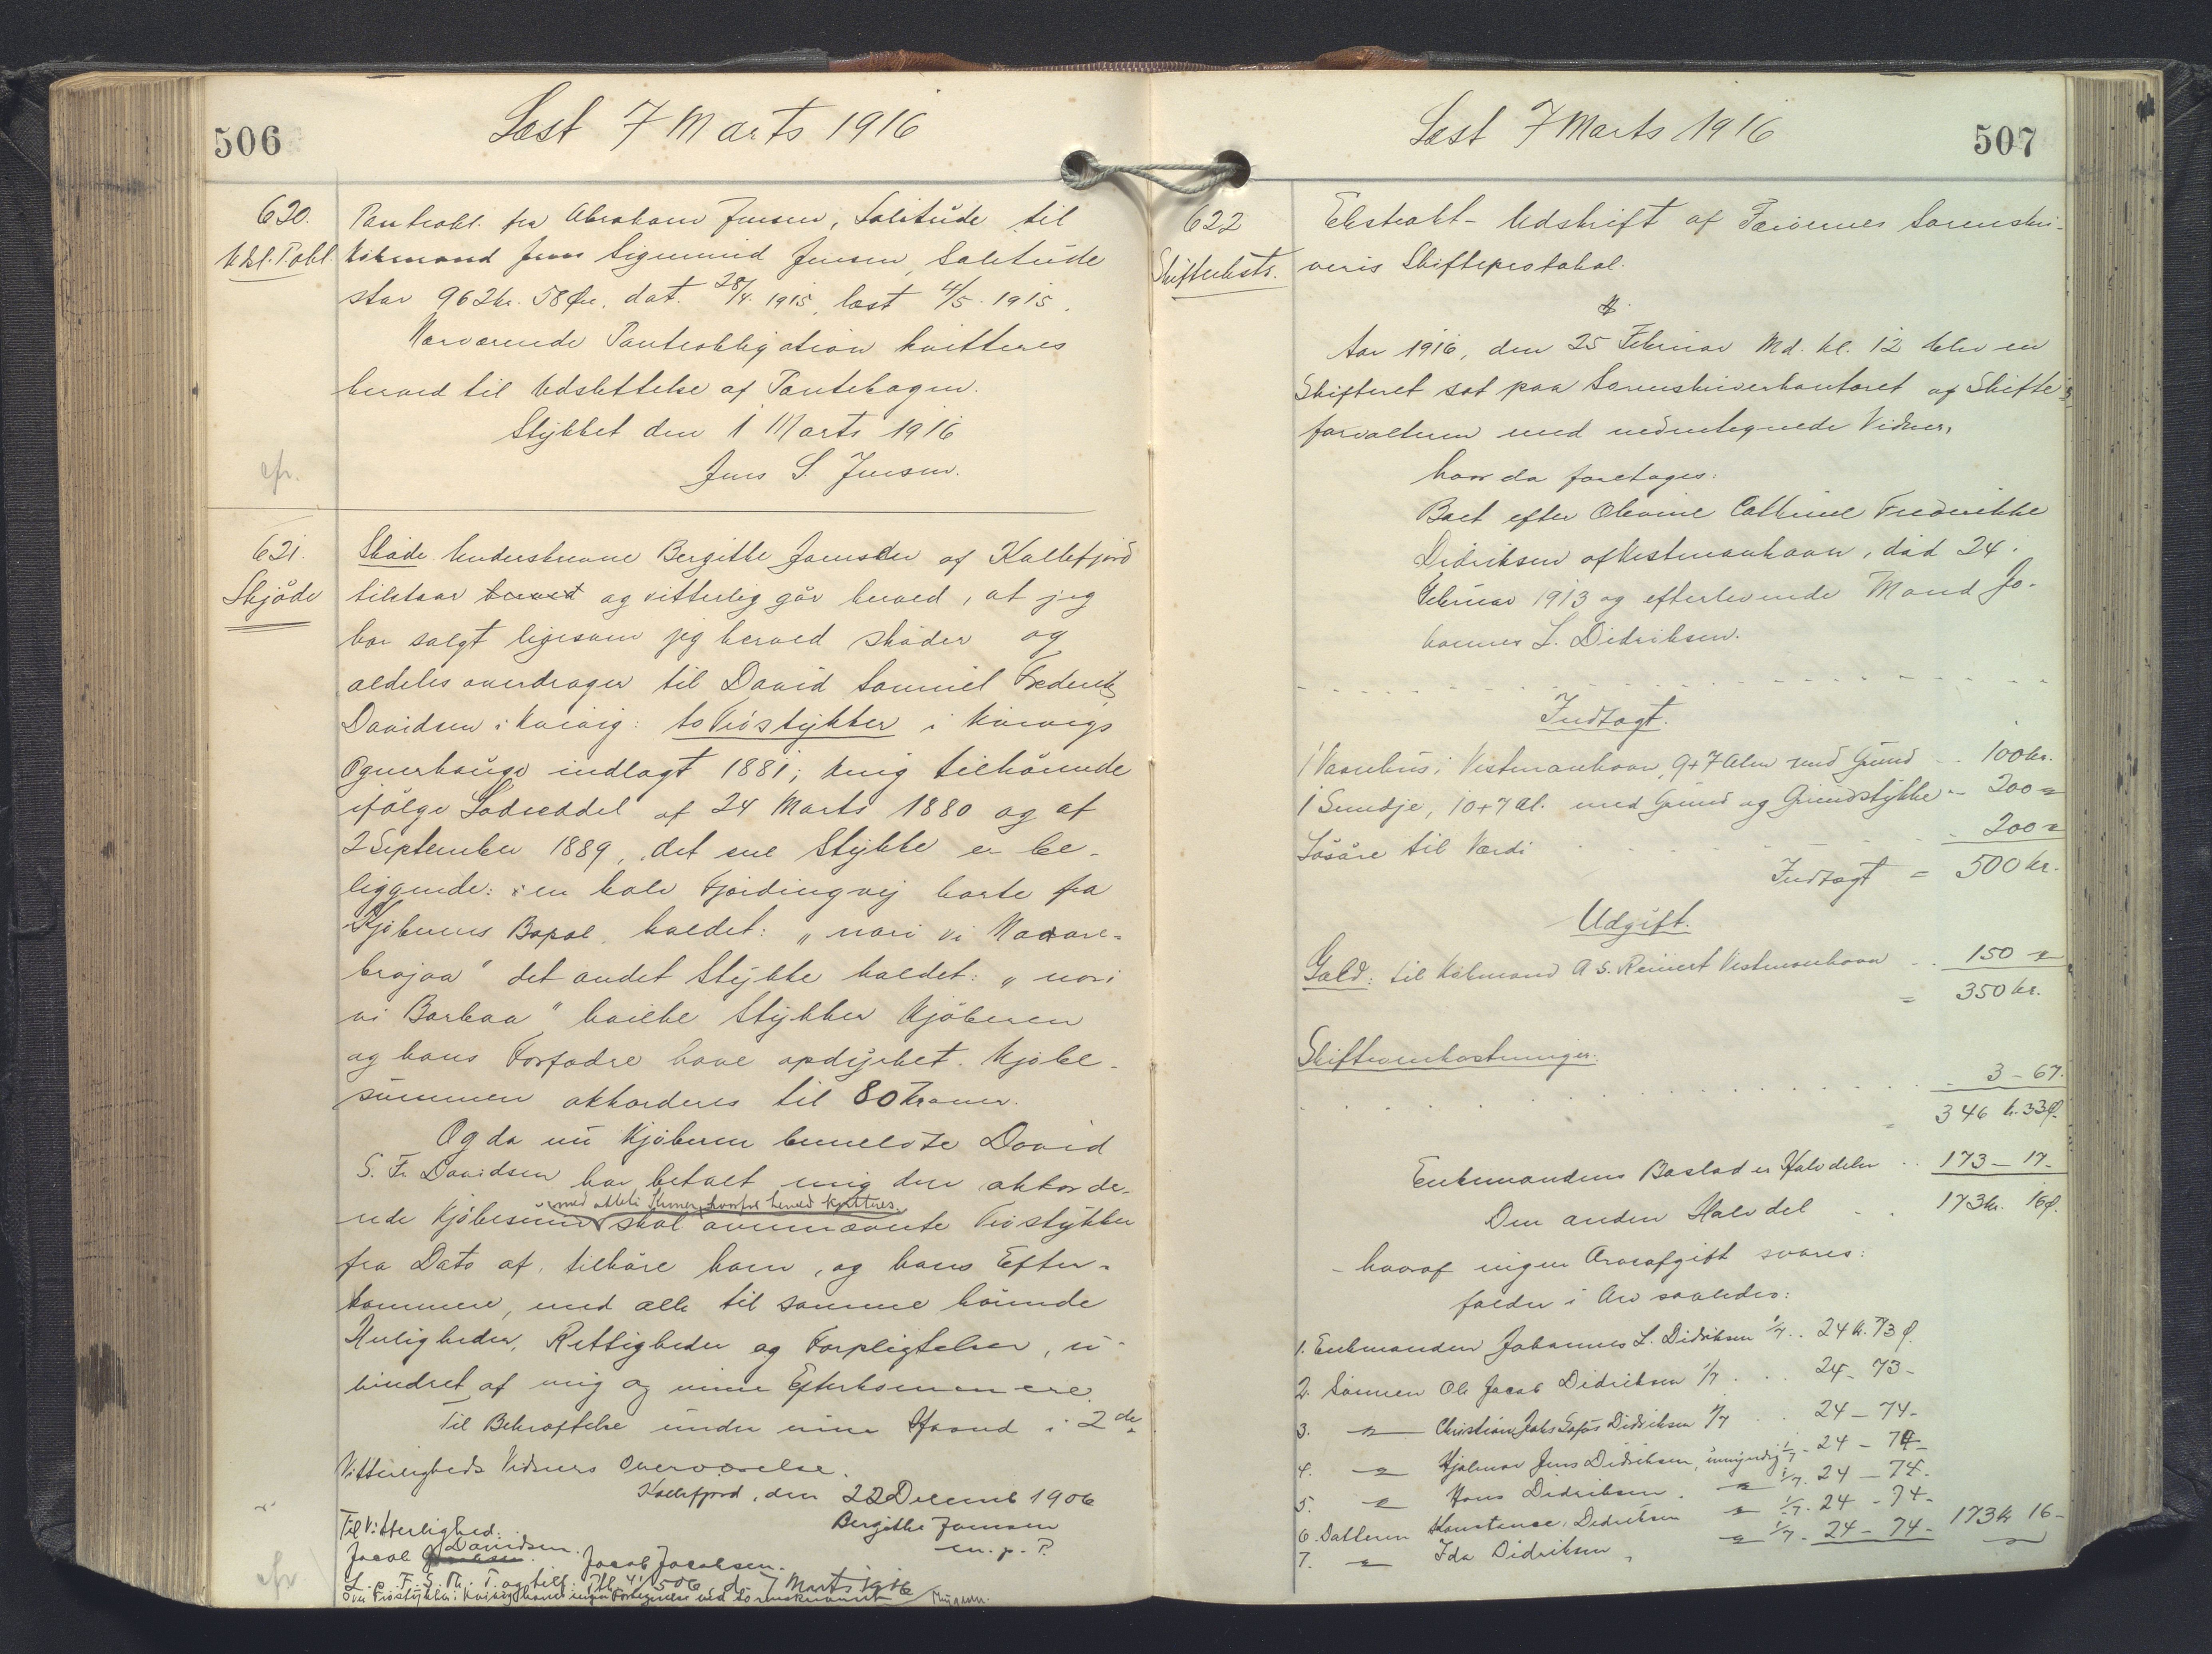 506
Læst 7 Marts 1916
620.
Udsl. P. obl.
Panteobl. fra Abraham Jensen, Solitude til
Købmand Jens Sigmund Jensen, Solitude
stor 962 kr. 58 Øre, dat. 28/4. 1915, læst 4/5. 1915.
Nærværende Panteobligation kvitteres
herved til Udslettelse af Pantebogen.
Stykket den 1 Marts 1916
Jens S. Jensen.
cfr.
621.
Skjøde
Skøde. Underskrevne Bergithe Joensen af Kollefjord
tilstaar herved og vitterlig gör herved, at jeg
har solgt ligesom jeg herved skøder og
aldeles overdrager til David Samuel Frederik
Davidsen i Kvivig: to Tröstykker i Kvivigs
Ognerhauge indlagt 1881; mig tilhörende
ifölge Lodseddel af 24 Marts 1880 og af
2 September 1889, det ene Stykke er be-
liggende: en halv Fjerdingvej borte fra
Kjøberens Bopæl, kaldet: "nori vi
det andet Stykke kaldet: "nori
vi Barbaa" hvilke Stykker Kjøberen
og hans Forfædre have opdyrket. Kjøbe-
summen akkorderes til 80 Kroner.
Og da nu Kjøberen bemeldte David
S. Fr. Davidsen har betalt mig den akkorde-
rede Kjøbesum skal ovennævnte Tröstykker
fra Dato af, tilhøre ham, og hans Efter-
kommere, med alle til samme hörende
Herligheder, Rettigheder og Forpligtelser, u-
hindret af mig og mine Efterkommere.
Til Bekræftelse under min Haand i 2de
Vitterligheds Vidners Overværelse.
Kollefjord, den 22 Decemb 1906
Bergithe Joensen
m. p. P.
Til Vitterlighed:
Jacob Davidsen. Jacob Jacobsen.
L. p. F. S. Th. T. og tilf. Ptb. 41/506 d. 7 Marts 1916
507
Læst 7 Marts 1916
622
Skifteekstr.
Ekstrakt-Udskrift af Færøernes Sorenskri-
veris Skifteprotokol.
Aar 1916, den 25 Februar Md. kl. 12 blev en
Skifteret sat paa Sorenskriverkontoret af Skifte-
forvalteren med undertegnede Vidner,
hvor da foretages:
Boet efter Olevine Cathrine Frederikke
Didriksen af Vestmanhavn, död 24.
Februar 1913 og efterlevende Mand Jo-
hannes L. Didriksen.
Indtægt.
1 Vaanhus i Vestmanhavn, 9+7 Alen med Grund - - 100 kr.
1 Smidje, 10+7 Al. med Grund og Grundstykke - 200 "
Løsøre til Værdi 200 "
Indtægt = 500 kr.
Udgift.
Gæld: til Købmand A S. Reinert Vestmanhavn - - 150 "
= 350 kr.
Skifteomkostninger:
3 - 67.
= 346 kr. 33 Ø.
Enkemandens Boslod er Halvdelen - - 173 - 17 -
Den anden Halvdel - - 173 kr. 16 Ø.
- hvoraf ingen Arveafgift svares:
falder i Arv saaledes:
1. Enkemanden Johannes L. Didriksen 1/7 . . 24 k. 73 Ø.
2. Sønnen Ole Jacob Didriksen 1/7 . . . 24 - 73 -
3. " Christian Didriksen 1/7 . . 24 - 74 -
4. " Hjalmar Jens Didriksen, umyndig 1/7 - 24 - 74 -
5. " Hans Didriksen, " 1/7. 24 - 74 -
6. Datteren Konstanse Didriksen " 1/7. 24 - 74 -
7. " Ida Didriksen, " 1/7. 24 - 74 - 173 kr 16 -